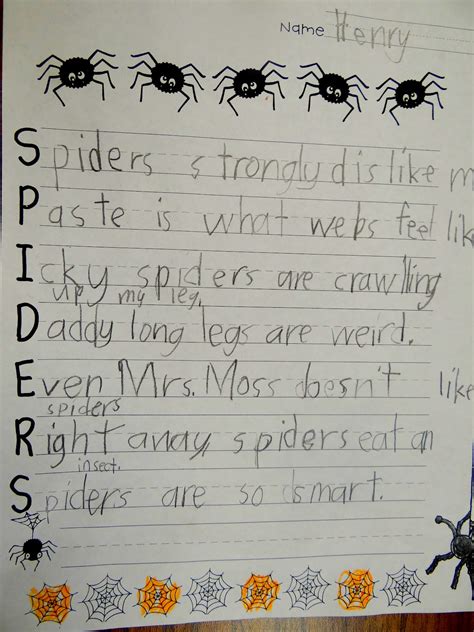 Name Henry
Spiders strongly dislike m
Paste is what webs feel lik
Icky spiders are crawlling
up my leg.
Daddy long legs are weird.
Even Mrs. Moss doesn't like
spiders
Right away, spiders eat an
insect.
Spiders are so smart.